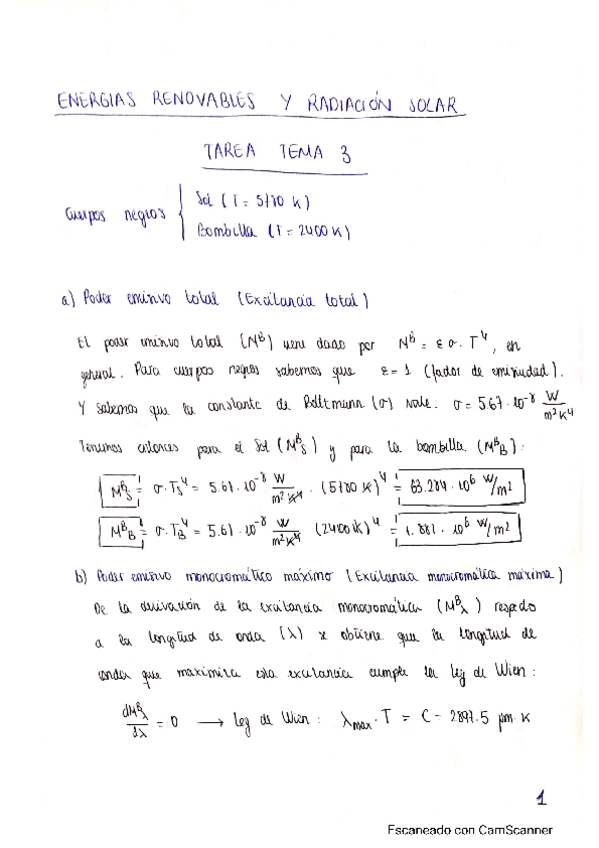 ENERGIAS RENOVABLES Y RADIACIÓN SOLAR
TAREA TEMA 3
Cuerpos negros { Sol (T = 5780 K)
Bombilla (T = 2400 K)
a) Poder emisivo total (Excitancia total)
El poder emisivo total (M^B) viene dado por M^B = ε σ · T^4, en
general. Para cuerpos negros sabemos que ε = 1 (factor de emisividad).
Y sabemos que la constante de Boltzmann (σ) vale: σ = 5.67 · 10^-8 W/m²K⁴
Tenemos entonces para el Sol (M^B_S) y para la bombilla (M^B_B):
M^B_S = σ · T_S^4 = 5.67 · 10^-8 W/m²K⁴ · (5780 K)^4 = 63.284 · 10^6 W/m²
M^B_B = σ · T_B^4 = 5.67 · 10^-8 W/m²K⁴ (2400 K)^4 = 1.881 · 10^6 W/m²
b) Poder emisivo monocromático máximo (Excitancia monocromática máxima)
De la derivación de la excitancia monocromática (M^B_λ) respecto
a la longitud de onda (λ) se obtiene que la longitud de
onda que maximiza esta excitancia cumple la ley de Wien:
dM^B_λ/dλ = 0 → Ley de Wien: λ_max · T = C = 2897.5 μm · K
1
Escaneado con CamScanner